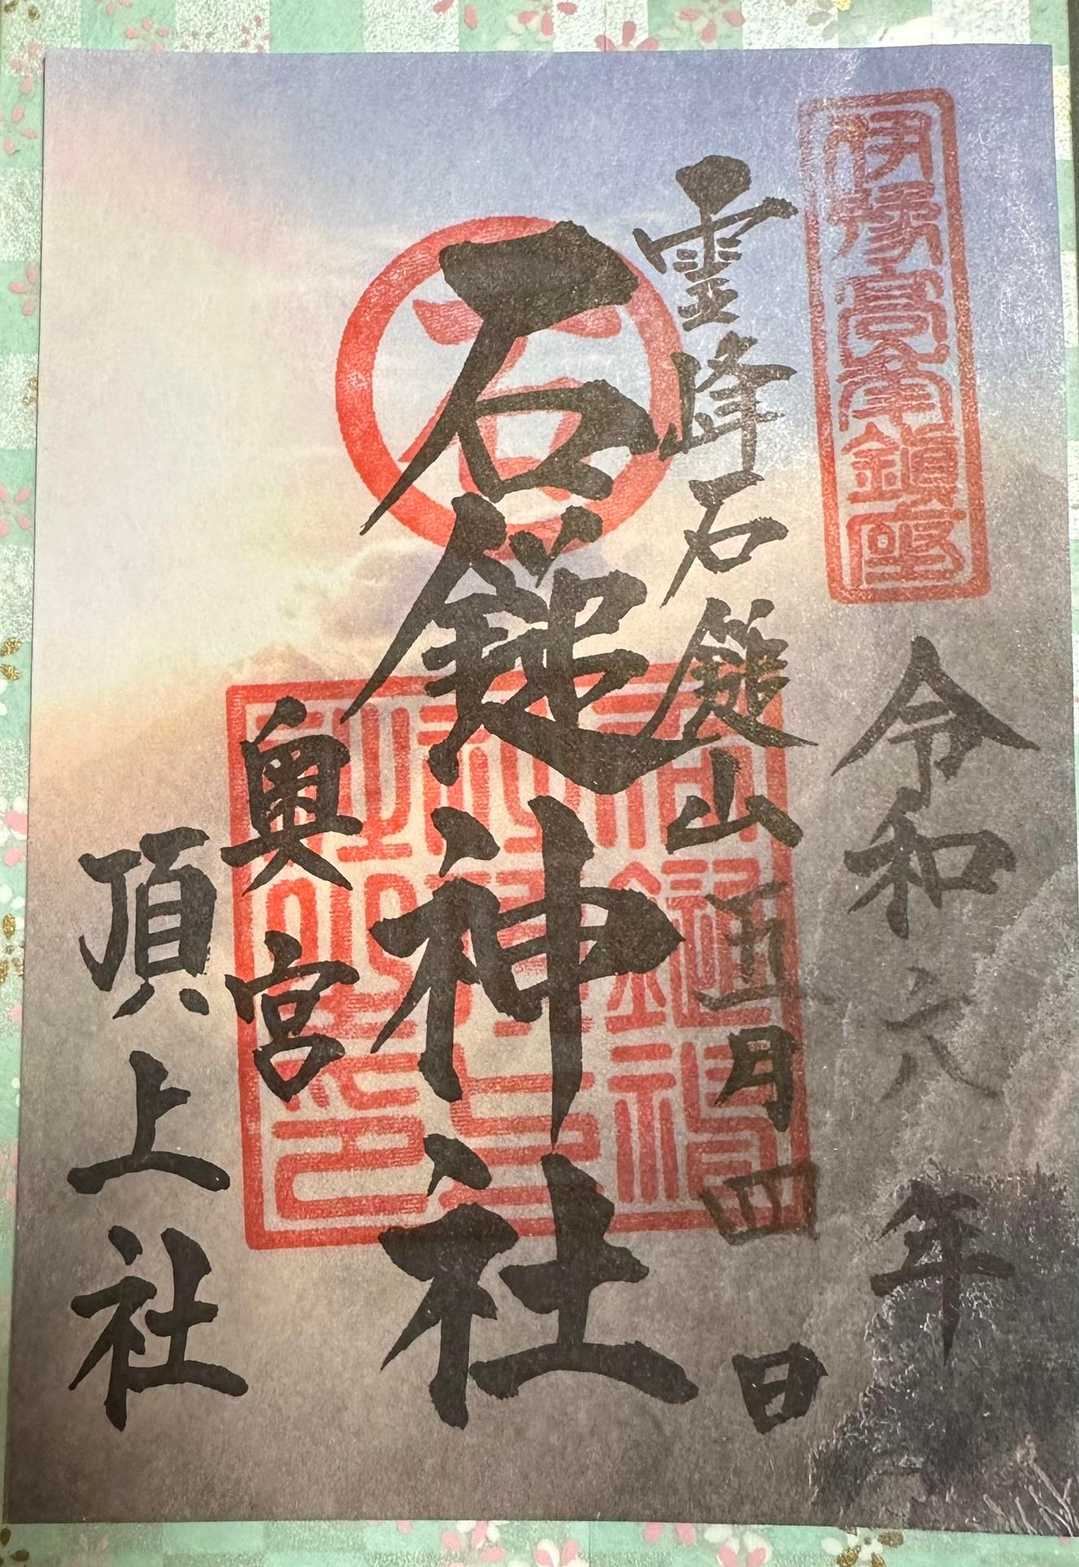 伊豫高峯鎮座
令和六年
霊峰石鎚山
五月四日
石鎚神社
奥宮
頂上社